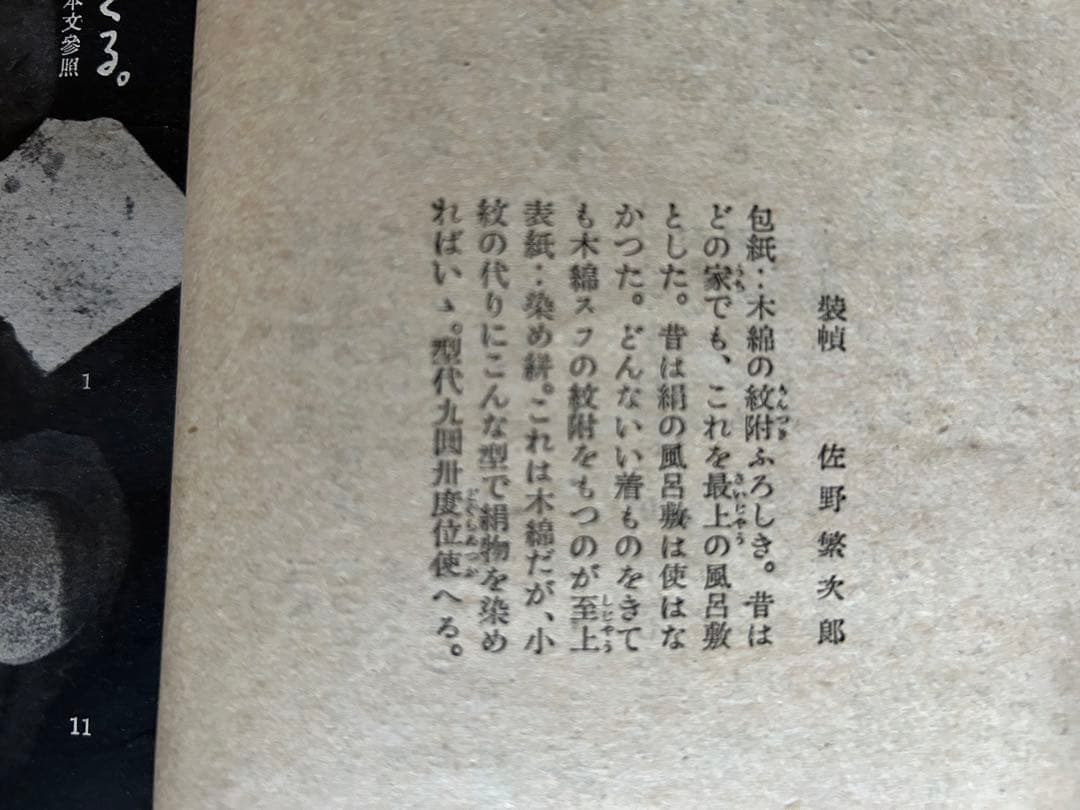 裝幀 佐野繁次郎
包紙：木綿の紋附ふろしき。昔は
どの家でも、これを最上の風呂敷
とした。昔は絹の風呂敷は使はな
かつた。どんないい着ものをきて
も木綿スフの紋附をもつのが至上
表紙：染め絣。これは木綿だが、小
紋の代りにこんな型で絹物を染め
ればいゝ。型代九圓卅度位使へる。
る。
本文參照
1
11